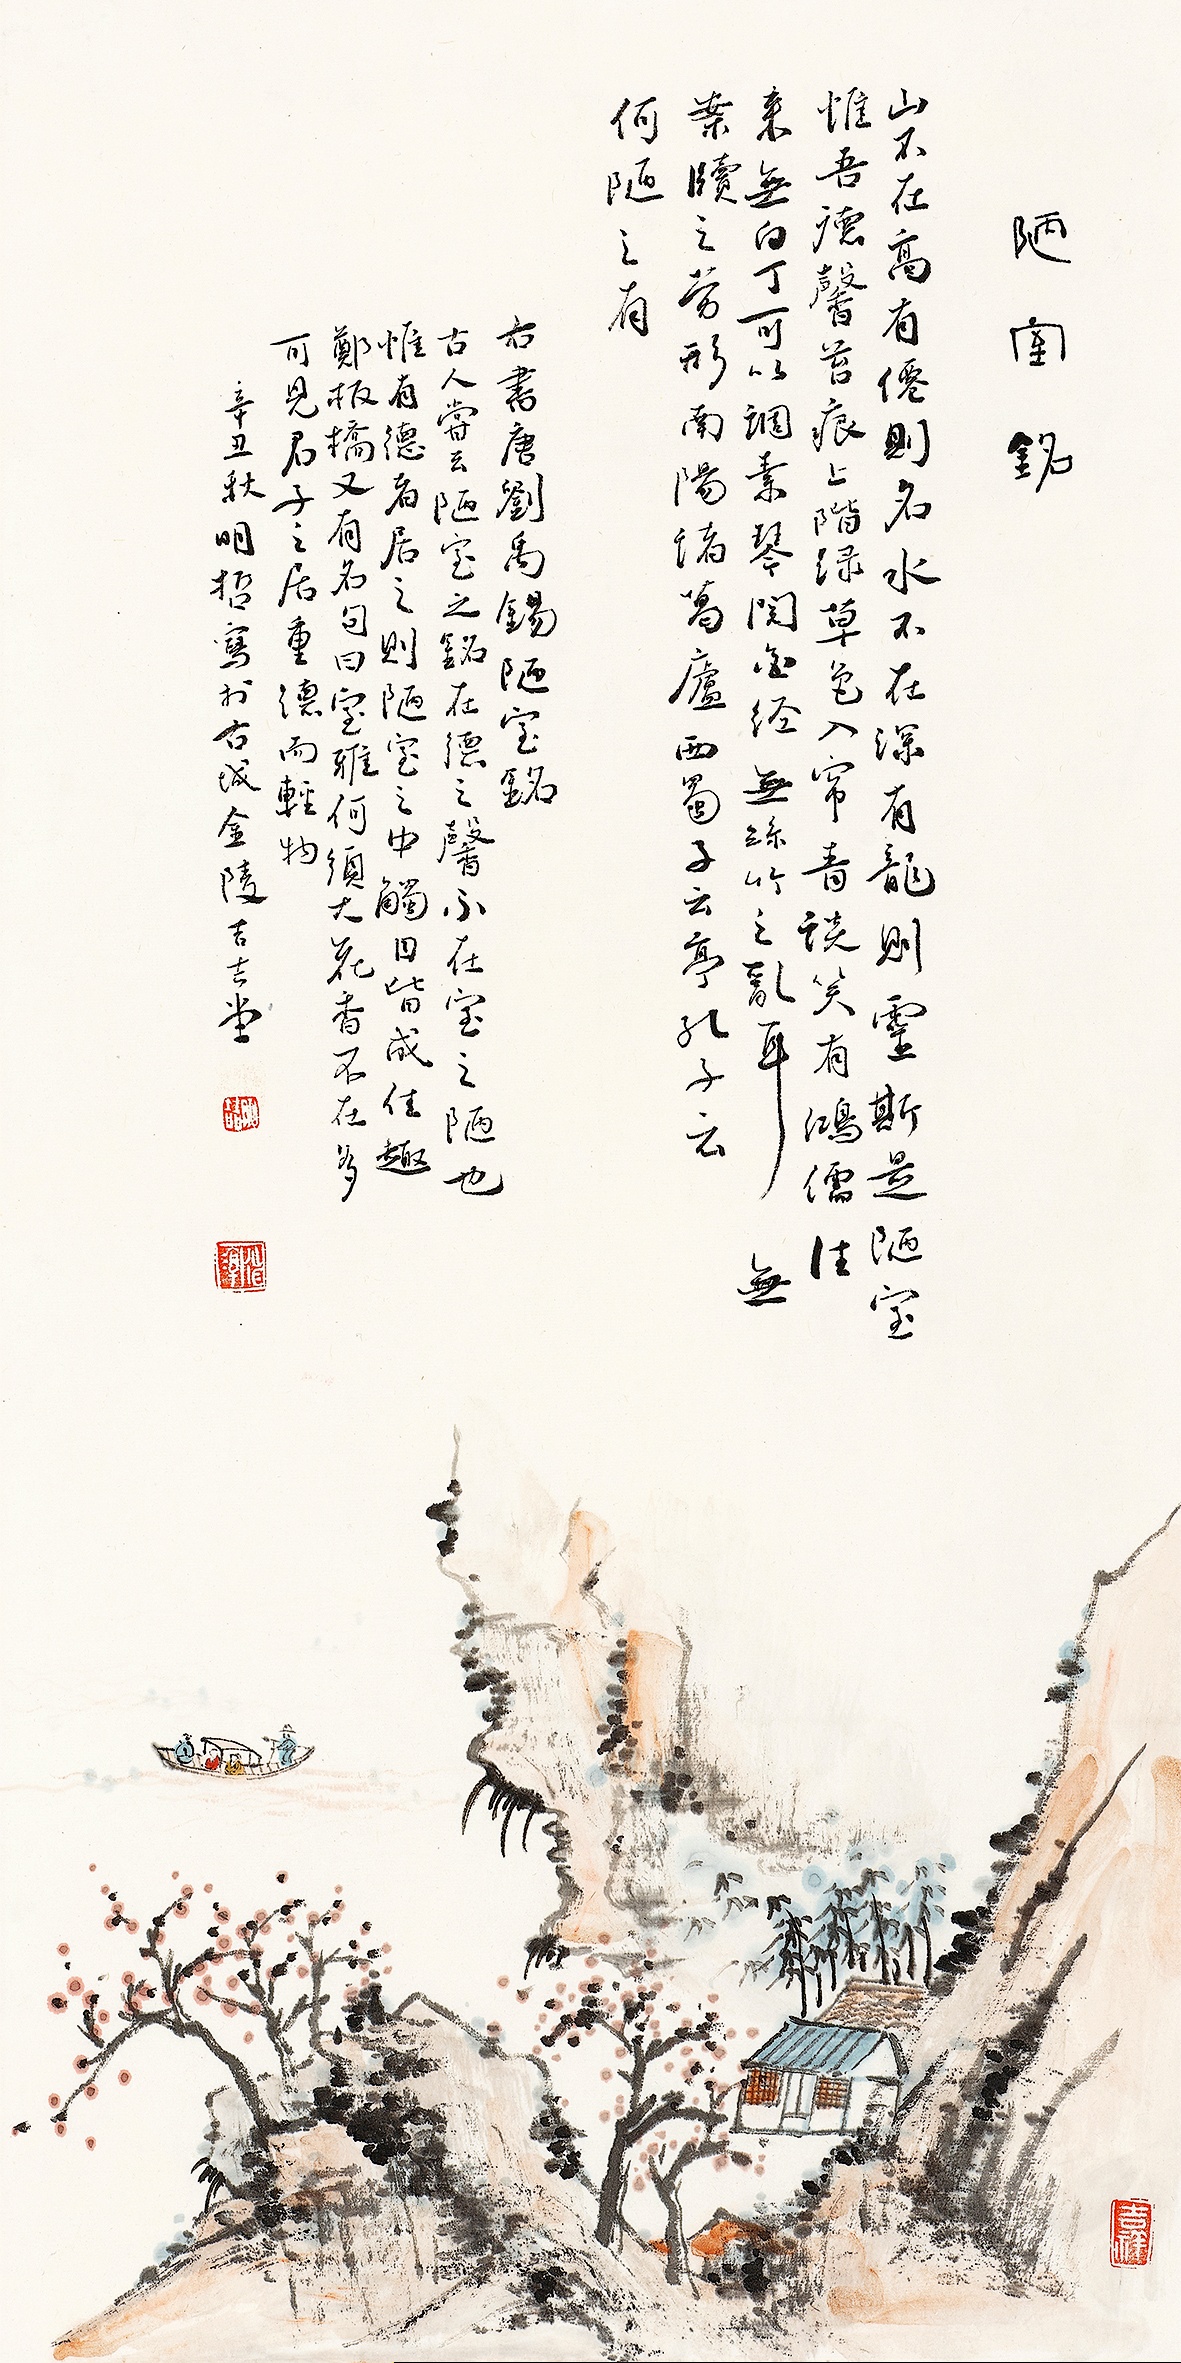 陋室銘
山不在高有僊則名水不在深有龍則靈斯是陋室
惟吾德馨苔痕上階绿草色入帘青谈笑有鴻儒往
来無白丁可以調素琴閱金经無絲竹之亂耳無
案牘之劳形南陽诸葛廬西蜀子云亭孔子云
何陋之有
右書唐劉禹錫陋室銘
古人嘗云陋室之銘在德之馨不在室之陋也
惟有德者居之則陋室之中觸目皆成佳趣
鄭板橋又有名句曰室雅何須大花香不在多
可見君子之居重德而輕物
辛丑秋明哲寫於古城金陵吉吉堂
吉祥